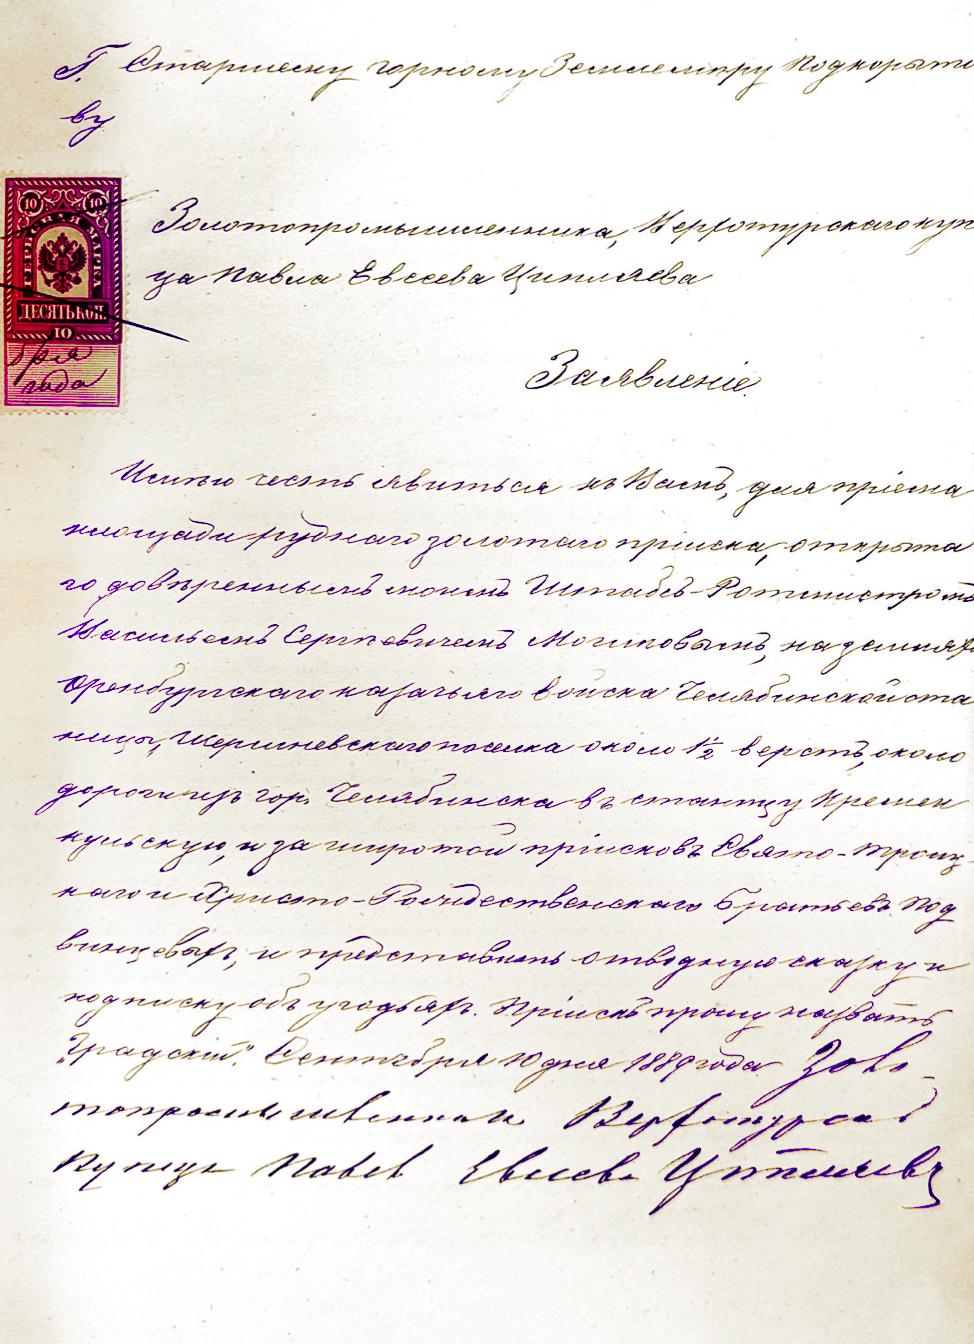 Г. Старшему горному Землемеру Подкорыто
ву
10 10
ГЕРБОВАЯ МАРКА
ДЕСЯТЬ КОП.
10
года
Золотопромышленника, Верхотурскаго куп
ца Павла Евсеева Ципляева
Заявленіе.
Имѣю честь явиться къ Вамъ, для пріема
площади руднаго золотаго пріиска, открыта
го довѣреннымъ моимъ Штабсъ-Ротмистромъ
Васильемъ Сергѣевичемъ Мотиковымъ, на земляхъ
Оренбургскаго казачьяго войска Челябинской ста
ницы, Шершневскаго поселка около 1½ верстъ, около
дороги изъ гор. Челябинска въ станицу Кремен
кульскую, и за широтой пріисковъ Свято-Троиц-
каго и Христо-Рождественскаго Братьевъ Под
винцевыхъ, и представить отводную сказку и
подписку объ угодьяхъ. Пріискъ прошу назвать
„Градскій". Сентября 10 дня 1889 года. Золо-
топромышленник Верхотурской
Купецъ Павел Евсеев Ципляевъ